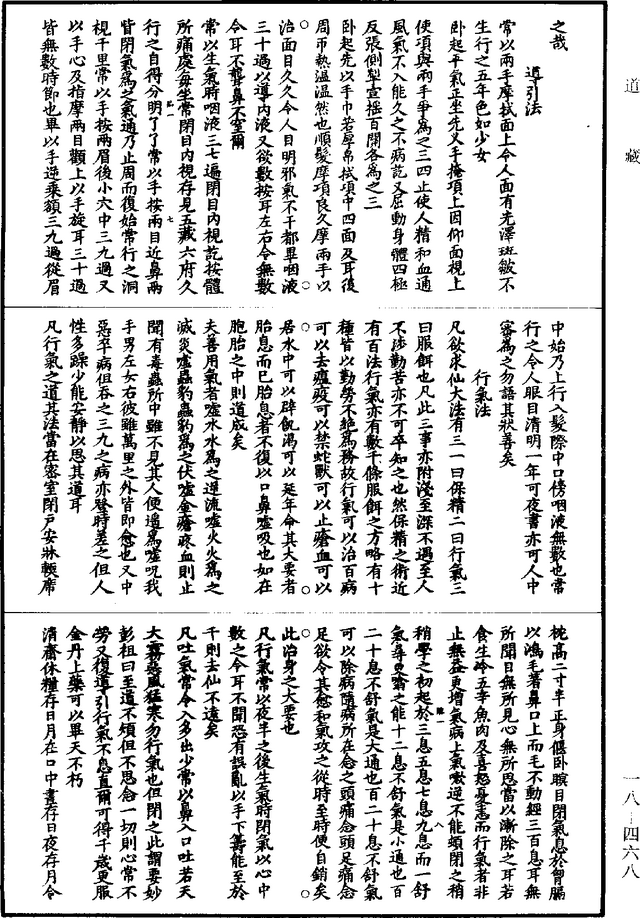 道藏
一八—四六八
之哉
導引法
常以兩手摩拭面上令人面有光澤斑皺不
生行之五年色如少女
卧起平氣正坐先叉手掩項上因仰面視上
使項與兩手爭為之三四止使人精和血通
風氣不入能久之不病訖又屈動身體四極
反張側掣宣摇百關各為之三
卧起先以手巾若厚帛拭項中四面及耳後
周帀熱温温然也順髮摩項良久摩兩手以
治面目久久令人目明邪氣不干都畢咽液
三十過以導内液又欲數按耳左右令無數
令耳不聾鼻不窒爾
常以生氣時咽液三七過閉目内視訖按體
所痛處每坐常閉目内視存見五藏六府久
行之自得分明了了常以手按兩目近鼻兩
皆閉氣為之氣通乃止周而復始常行之洞
視千里常以手按兩眉後小穴中三九過又
以手心及指摩兩目顴上以手旋耳三十過
皆無數時節也畢以手逆乘額三九過從眉
中始乃上行入髮際中口傍咽液無數也常
行之令人服目清明一年可夜書亦可人中
密為之勿語其狀善矣
行氣法
凡欲求仙大法有三一曰保精二曰行氣三
曰服餌也凡此三事亦附淺至深不遇至人
不涉勤苦亦不可卒知之也然保精之術近
有百法行氣亦有數千條服餌之方略有十
種皆以勤勞不絶為務故行氣可以治百病
可以去瘟疫可以禁蛇獸可以止瘡血可以
居水中可以辟飢渴可以延年命其大要者
胎息而已胎息者不復以口鼻噓吸也如在
胞胎之中則道成矣
夫善用氣者噓水水為之逆流噓火火為之
滅炎噓蟲豹蟲豹為之伏噓金瘡疼血則止
聞有毒蟲所中雖不見其人便遥為噓咒我
手男左女右彼雖萬里之外皆即愈也又中
惡卒病但吞之三九之病亦登時差之但人
性多躁少能安靜以思其道耳
凡行氣之道其法當在密室閉户安牀輭席
枕高二寸半正身偃卧瞑目閉氣息於胷膈
以鴻毛著鼻口上而毛不動經三百息耳無
所聞目無所見心無所思當以漸除之耳若
食生冷五辛魚肉及喜怒憂恚而行氣者非
止無益更增氣病上氣嗽逆不能頻閉之稍
稍學之初起於三息五息七息九息而一舒
氣尋更噏之能十二息不舒氣是小通也百
二十息不舒氣是大通也百二十息不舒氣
可以除病隨病所在念之頭痛念頭足痛念
足欲令其愈和氣攻之從時至時便自銷矣
此治身之大要也
凡行氣常以夜半之後生氣時閉氣以心中
數之令耳不聞恐有誤亂以手下籌能至於
千則去仙不遠矣
凡吐氣常令入多出少常以鼻入口吐若天
大霧惡風猛寒勿行氣也但閉之此謂要妙
彭祖曰至道不煩但不思念一切則心常不
勞又復導引行氣不息直爾可得千歲更服
金丹上藥可以畢天不朽
清齋休糧存日月在口中晝存日夜存月令